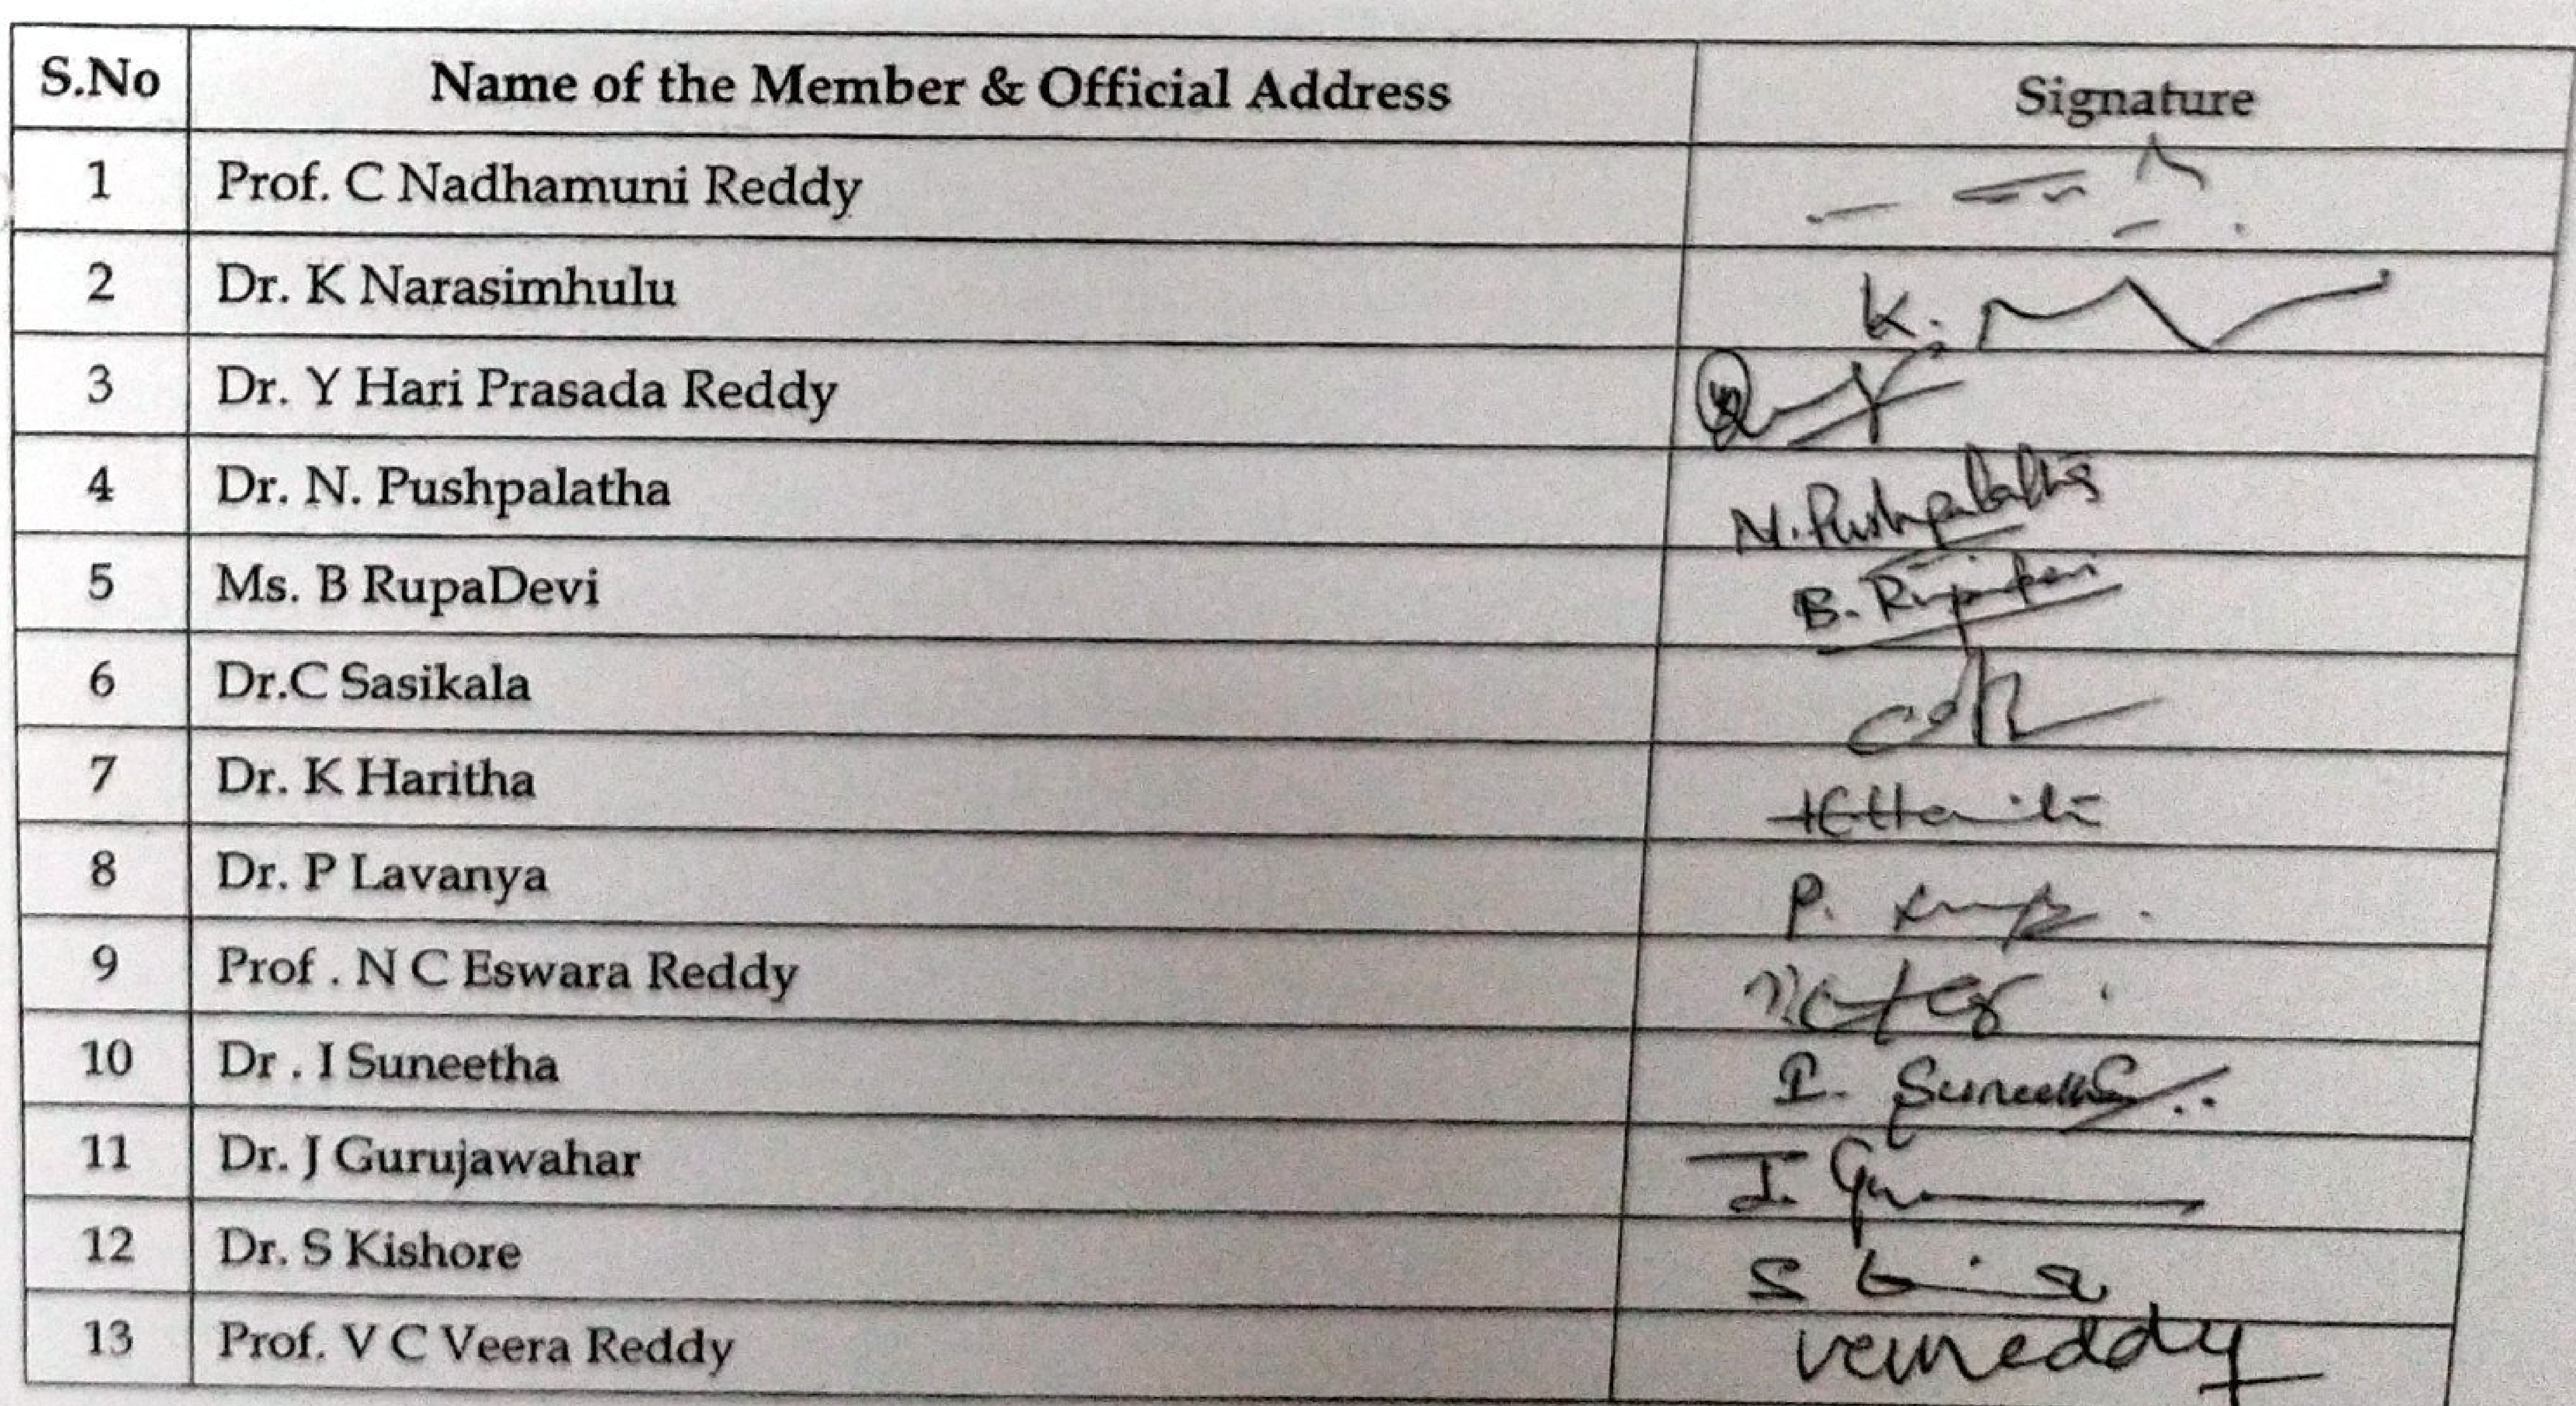 S.No Name of the Member & Official Address Signature
1 Prof. C Nadhamuni Reddy
2 Dr. K Narasimhulu K.
3 Dr. Y Hari Prasada Reddy
4 Dr. N. Pushpalatha N. Pushpalatha
5 Ms. B RupaDevi B.
6 Dr.C Sasikala
7 Dr. K Haritha
8 Dr. P Lavanya P.
9 Prof . N C Eswara Reddy
10 Dr . I Suneetha I. Suneetha
11 Dr. J Gurujawahar J.
12 Dr. S Kishore S
13 Prof. V C Veera Reddy